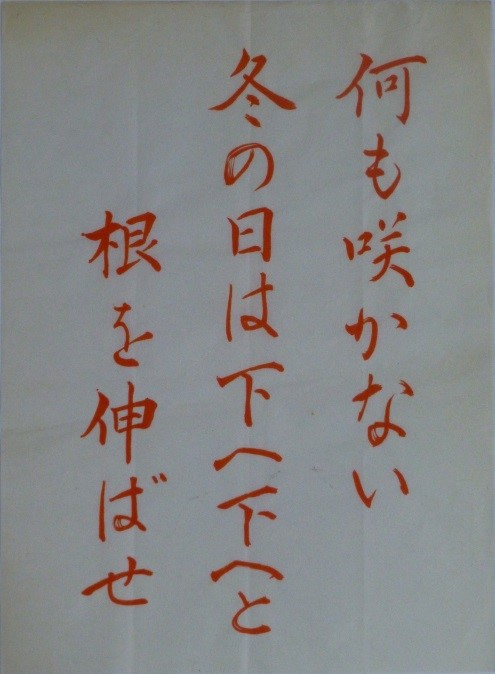 何も咲かない
冬の日は下へ下へと
根を伸ばせ